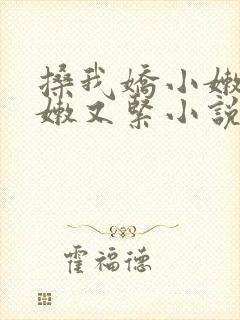 搡我嬌小嫩
嫩又緊小說
霍福德